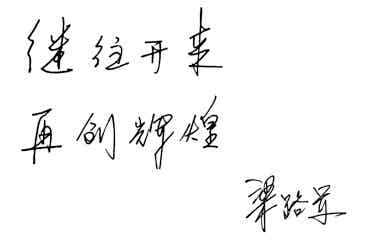 继往开来
再创辉煌
梁路